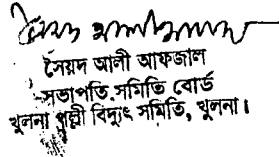 সৈয়দ আলী আফজাল
সভাপতি, সমিতি বোর্ড
খুলনা পল্লী বিদ্যুৎ সমিতি, খুলনা।